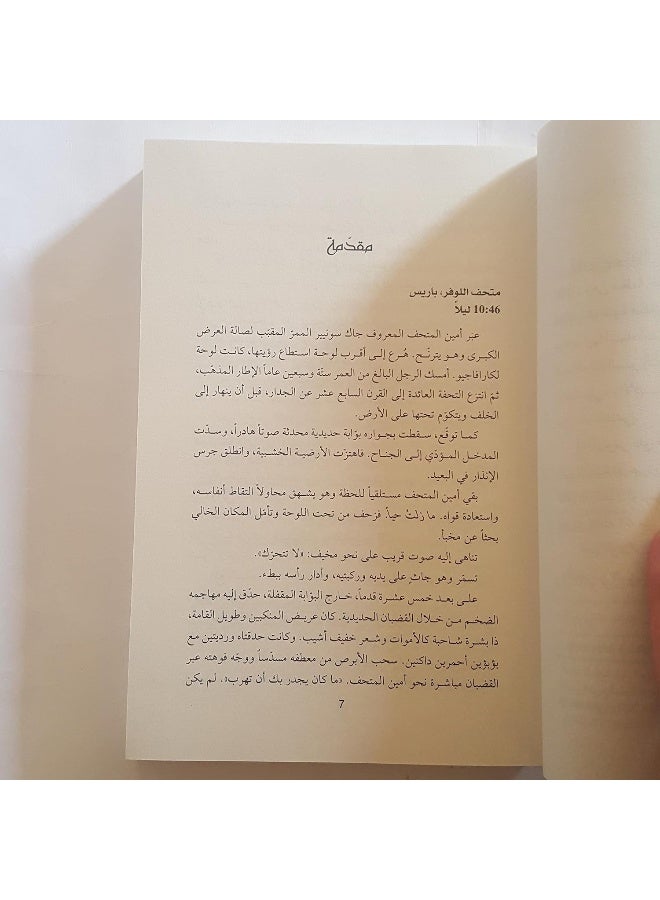 مقدّمة
متحف اللوفر، باريس
10:46 ليلاً
عبر أمين المتحف المعروف جاك سونيير الممرّ المقبّب لصالة العرض
الكبرى وهو يترنّح. هُرع إلى أقرب لوحة استطاع رؤيتها، كانت لوحة
لكارافاجيو. أمسك الرجل البالغ من العمر ستّة وسبعين عاماً الإطار المذهّب،
ثمّ انتزع التحفة العائدة إلى القرن السابع عشر عن الجدار، قبل أن ينهار إلى
الخلف ويتكوّم تحتها على الأرض.
كما توقّع، سقطت بجواره بوّابة حديدية محدثة صوتاً هادراً، وسدّت
المدخل المؤدّي إلى الجناح. فاهتزّت الأرضية الخشبية، وانطلق جرس
الإنذار في البعيد.
بقي أمين المتحف مستلقياً للحظة وهو يشهق محاولاً التقاط أنفاسه،
واستعادة قواه. ما زلتُ حياً. فزحف من تحت اللوحة وتأمّل المكان الخالي
بحثاً عن مخبأ.
تناهى إليه صوت قريب على نحو مخيف: «لا تتحرّك».
تسمّر وهو جاثٍ على يديه وركبتيه، وأدار رأسه ببطء.
على بعد خمس عشرة قدماً، خارج البوّابة المقفلة، حدّق إليه مهاجمه
الضخم من خلال القضبان الحديدية. كان عريض المنكبين وطويل القامة،
ذا بشرة شاحبة كالأموات وشعر خفيف أشيب. وكانت حدقتاه ورديتين مع
بؤبؤين أحمرين داكنين. سحب الأبرص من معطفه مسدّساً ووجّه فوهته عبر
القضبان مباشرة نحو أمين المتحف. «ما كان يجدر بك أن تهرب». لم يكن
7